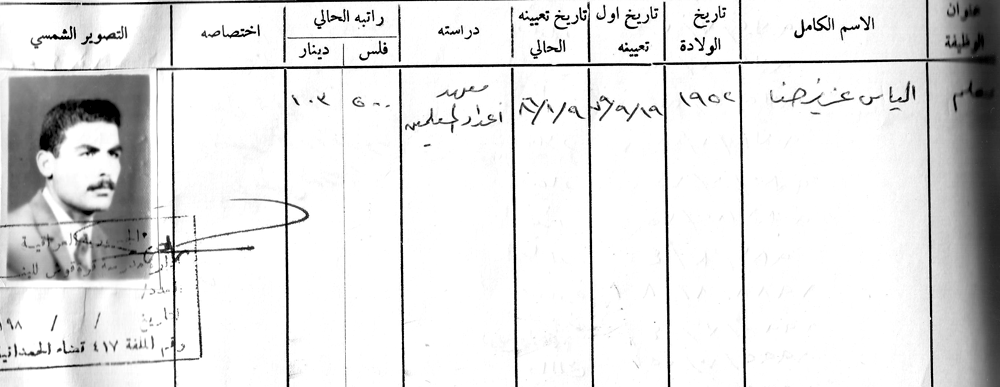 عنوان الوظيفة
الاسم الكامل
تاريخ الولادة
تاريخ اول تعيينه
تاريخ تعيينه الحالي
دراسته
راتبه الحالي
فلس
دينار
اختصاصه
التصوير الشمسي
معلم
الياس عزيز حنا
١٩٥٢
٧٩/٩/١٩
٨٦/١/٩
معهد
أعداد المعلمين
٥٠٠
١٠٣
قره قوش
العدد/
التاريخ / / ١٩٨
رقم الملفة ٤١٧ قضاء الحمدانية